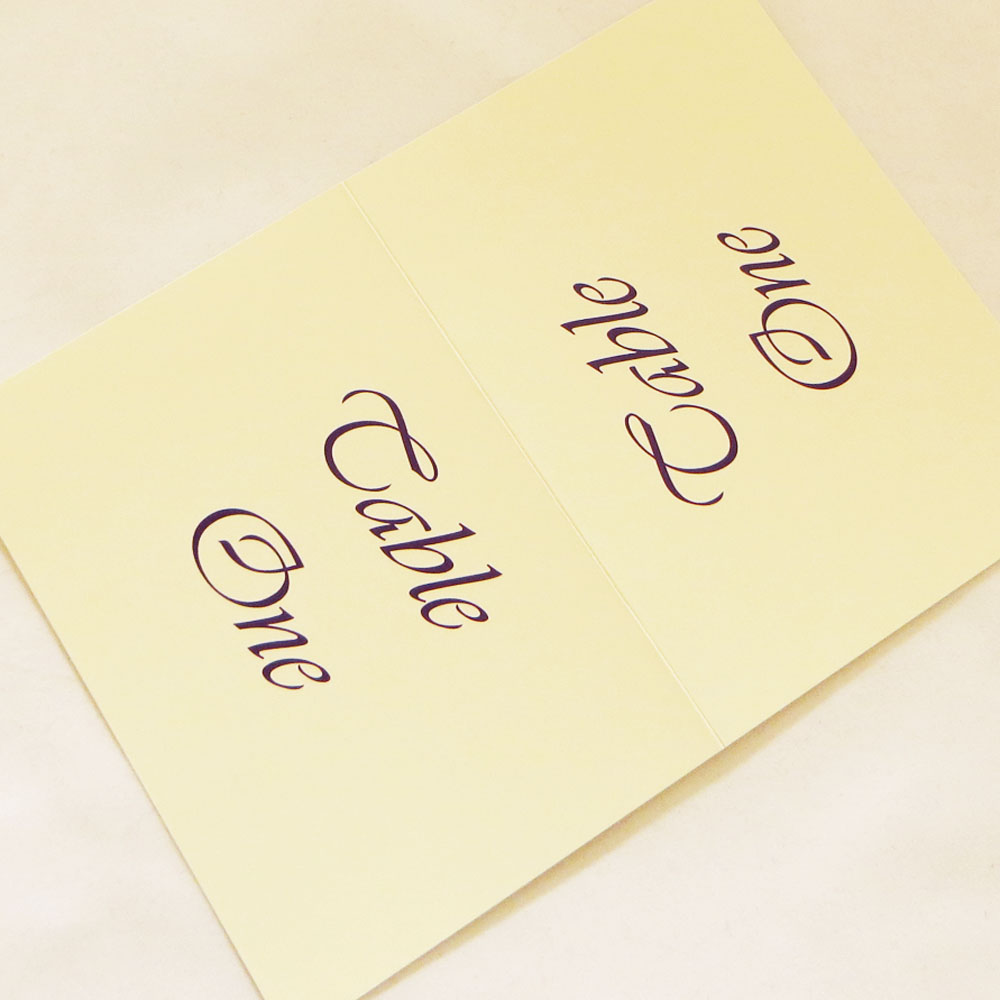 Table
One
Table
One